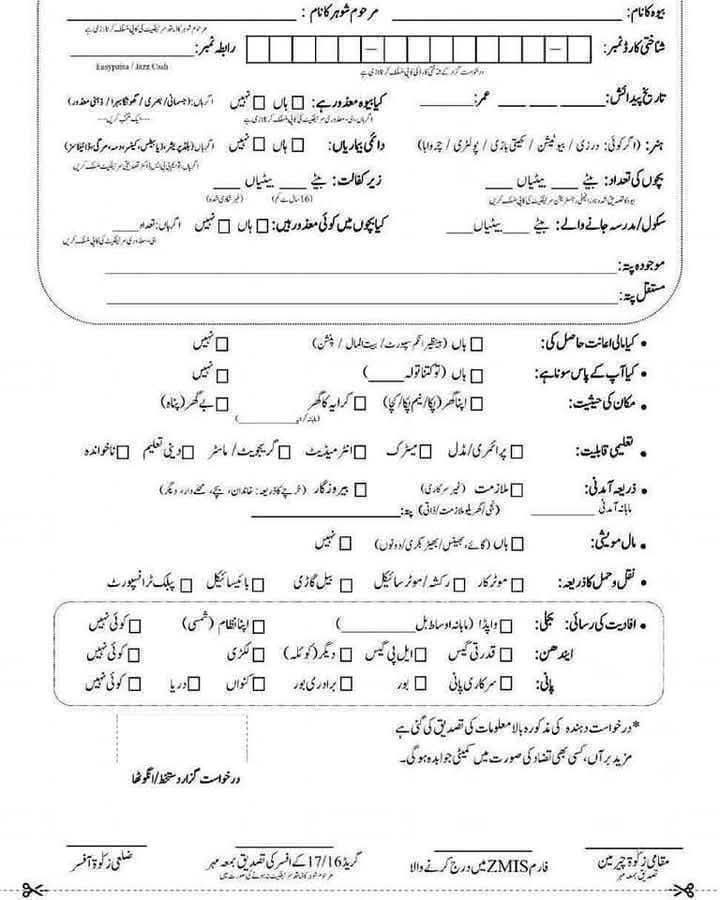 بیوہ کا نام: ____________ مرحوم شوہر کا نام : ____________
مرحوم شوہر کا ڈیتھ سرٹیفکیٹ کی کاپی منسلک کرنا لازمی ہے
شناختی کارڈ نمبر: رابطہ نمبر: ____________
درخواست گزار کے شناختی کارڈ کی کاپی منسلک کرنا لازمی ہے Easypaisa / Jazz Cash
تاریخ پیدائش: ____ ____ ____ عمر: ____ کیا بیوہ معذور ہے: □ ہاں □ نہیں اگر ہاں: (جسمانی/بصری/گونگا بہرا/ذہنی معذور)
ہنر: (اگر کوئی: درزی / بیوٹیشن / کھیتی باڑی / پولٹری / چرواہا) دائمی بیماریاں: □ ہاں □ نہیں اگر ہاں: (بلڈ پریشر، ذیابیطس، کینسر، دمہ، مرگی، ڈائیلاسز)
بچوں کی تعداد: بیٹے ____ بیٹیاں ____ زیر کفالت: بیٹے ____ بیٹیاں ____
(16 سال سے کم) (غیر شادی شدہ)
سکول/مدرسہ جانے والے: بیٹے ____ بیٹیاں ____ کیا بچوں میں کوئی معذور ہیں: □ ہاں □ نہیں اگر ہاں: تعداد ____
موجودہ پتہ: ____________
مستقل پتہ: ____________
• کیا مالی اعانت حاصل کی: □ ہاں (بینظیر انکم سپورٹ / بیت المال / پنشن) □ نہیں
• کیا آپ کے پاس سونا ہے: □ ہاں (تو کتنا تولہ ____) □ نہیں
• مکان کی حیثیت: □ اپنا گھر (پکا/نیم پکا/کچا) □ کرایہ کا گھر □ بے گھر (پناہ)
(ماہانہ کرایہ ____________)
• تعلیمی قابلیت: □ پرائمری/مڈل □ میٹرک □ انٹرمیڈیٹ □ گریجویٹ/ماسٹر □ دینی تعلیم □ ناخواندہ
• ذریعہ آمدنی: □ ملازمت (غیر سرکاری) □ بیروزگار (خرچے کا ذریعہ: خاندان، بچے، محلے دار، دیگر)
ماہانہ آمدنی ____________ (نجی/گھریلو ملازمت/ذاتی) پتہ: ____________
• مال مویشی: □ ہاں (گائے، بھینس/بھیڑ بکری/دونوں) □ نہیں
• نقل و حمل کا ذریعہ: □ موٹر کار □ رکشہ/موٹر سائیکل □ بیل گاڑی □ بائیسائیکل □ پبلک ٹرانسپورٹ
• افادیت کی رسائی: بجلی: □ واپڈا (ماہانہ اوسط بل ____________) □ اپنا نظام (شمسی) □ کوئی نہیں
ایندھن: □ قدرتی گیس □ ایل پی گیس □ دیگر (کوئلہ) □ لکڑی □ کوئی نہیں
پانی: □ سرکاری پانی □ بور □ برادری بور □ کنواں □ دریا □ کوئی نہیں
*درخواست دہندہ کی مذکورہ بالا معلومات کی تصدیق کی گئی ہے
مزید برآں، کسی بھی تضاد کی صورت میں کمیٹی جوابدہ ہوگی۔
درخواست گزار دستخط/انگوٹھا
مقامی زکوٰۃ چیرمین فارم ZMIS میں درج کرنے والا گریڈ 17/16 کے افسر کی تصدیق بمعہ مہر ضلعی زکوٰۃ آفسر
تصدیق بمعہ مہر